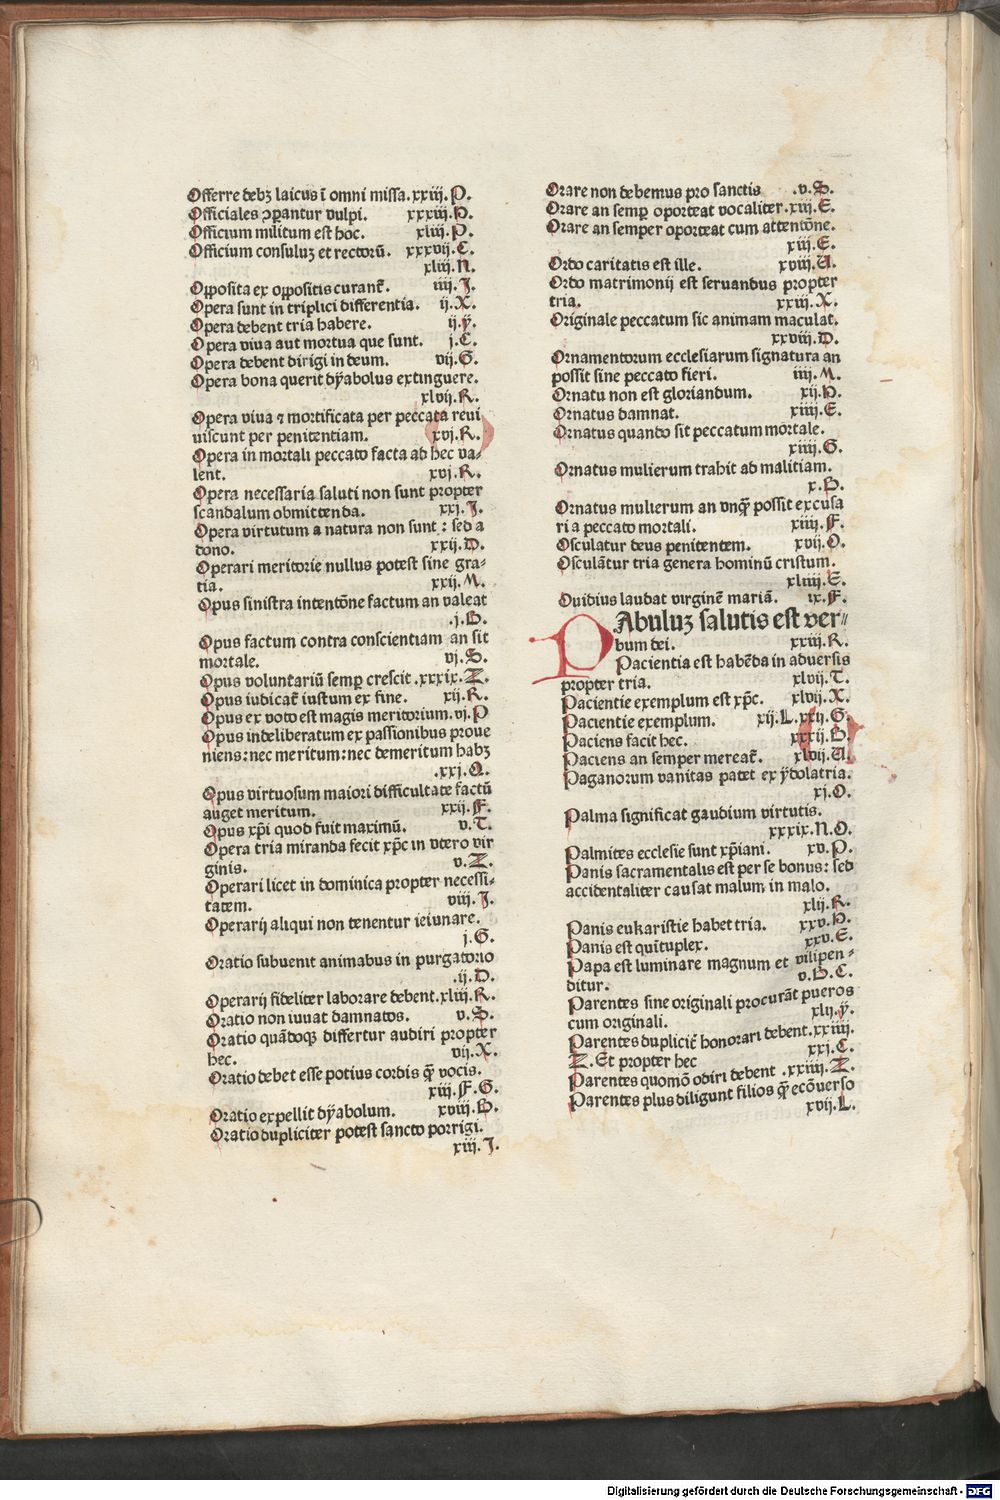 Offerre debꝫ laicus ī omni missa.xxiii.P.
Officiales ꝯpantur vulpi. xxxiii.P.
Officium militum est hoc. xliii.P.
Officium consuluꝫ et rectorū. xxxvii.C.
xliii.N.
Opposita ex oppositis curant̃. iiii.I.
Opera sunt in triplici differentia. ij.X.
Opera debent tria habere. ij.ÿ.
Opera viva aut mortua que sunt. j.C.
Opera debent dirigi in deum. vij.G.
Opera bona querit dyabolus extinguere.
xlvij.R.
Opera viva ⁊ mortificata per peccata revi
uiscunt per penitentiam. xvj.R.
Opera in mortali peccato facta ad hec va-
lent. xvj.R.
Opera necessaria saluti non sunt propter
scandalum obmittenda. xxj.I.
Opera virtutum a natura non sunt: sed a
dono. xxij.D.
Operari meritorie nullus potest sine gra-
tia. xxij.M.
Opus sinistra intentōne factum an valeat
.j.B.
Opus factum contra conscientiam an sit
mortale. vj.S.
Opus voluntariū semꝑ crescit .xxxix.Z.
Opus iudicat̃ iustum ex fine. xij.R.
Opus ex voto est magis meritorium.vj.P
Opus indeliberatum ex passionibus prove
niens: nec meritum: nec demeritum habꝫ
.xxj.Q.
Opus virtuosum maiori difficultate factū
auget meritum. xxij.F.
Opus xp̄i quod fuit maximū. v.T.
Opera tria miranda fecit xp̄c in vtero vir
ginis. v.Z.
Operari licet in dominica propter necessi-
tatem. viii.I.
Operarij aliqui non tenentur ieiunare.
j.G.
Oratio subuenit animabus in purgatorio
.ij.D.
Operarij fideliter laborare debent.xliii.R.
Oratio non iuvat damnatos. v.S.
Oratio quādoqꝫ differtur audiri propter
hec. vij.X.
Oratio debet esse potius cordis q̄ꝫ vocis.
xiii.F.G.
Oratio expellit dyabolum. xviii.B.
Oratio dupliciter potest sancto porrigi.
xiii.I.
Orare non debemus pro sanctis .v.S.
Orare an semꝑ oporteat vocaliter.xiii.E.
Orare an semper oporteat cum attentōne.
xiii.E.
Ordo caritatis est ille. xviii.U.
Ordo matrimonij est servandus propter
tria. xxiii.X.
Originale peccatum sic animam maculat.
xxviii.D.
Ornamentorum ecclesiarum signatura an
possit sine peccato fieri. iiii.M.
Ornatu non est gloriandum. xij.P.
Ornatus damnat. xiiii.E.
Ornatus quando sit peccatum mortale.
xiiii.G.
Ornatus mulierum trahit ad malitiam.
x.B.
Ornatus mulierum an vnq̄ꝫ possit excusa
ri a peccato mortali. xiiii.F.
Osculatur deus penitentem. xvij.O.
Osculātur tria genera hominū cristum.
xliiii.E.
Ovidius laudat virginē mariā. ix.F.
PAbuluꝫ salutis est ver-
bum dei. xxiii.R.
Pacientia est habēda in adversis
propter tria. xlvij.T.
Pacientie exemplum est xp̄c. xlvij.X.
Pacientie exemplum. xij.L.xxij.G.
Paciens facit hec. xxxij.B.
Paciens an semper mereat̃. xlvij.U.
Paganorum vanitas patet ex ydolatria.
xj.O.
Palma significat gaudium virtutis.
xxxix.N.O.
Palmites ecclesie sunt xp̄iani. xv.P.
Panis sacramentalis est per se bonus: sed
accidentaliter causat malum in malo.
xlij.R.
Panis eukaristie habet tria. xxv.P.
Panis est quītuplex. xxv.E.
Papa est luminare magnum et vilipen-
ditur. v.B.C.
Parentes sine originali procurāt pueros
cum originali. xlij.ÿ.
Parentes duplicit̃ honorari debent.xxiiii.
Z. Et propter hec xxj.C.
Parentes quomō odiri debent .xxiiii.Z.
Parentes plus diligunt filios q̄ꝫ ecōverso
xvij.L.
Digitalisierung gefördert durch die Deutsche Forschungsgemeinschaft - DFG